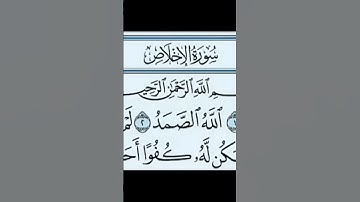 سُورَةُ الإِخْلَاصِ
ـمِ اللَّهِ الرَّحْمَٰنِ الرَّحِيـ
١ اللَّهُ الصَّمَدُ ٢ لَمْ
ـكُن لَّهُ كُفُوًا أَحَـ